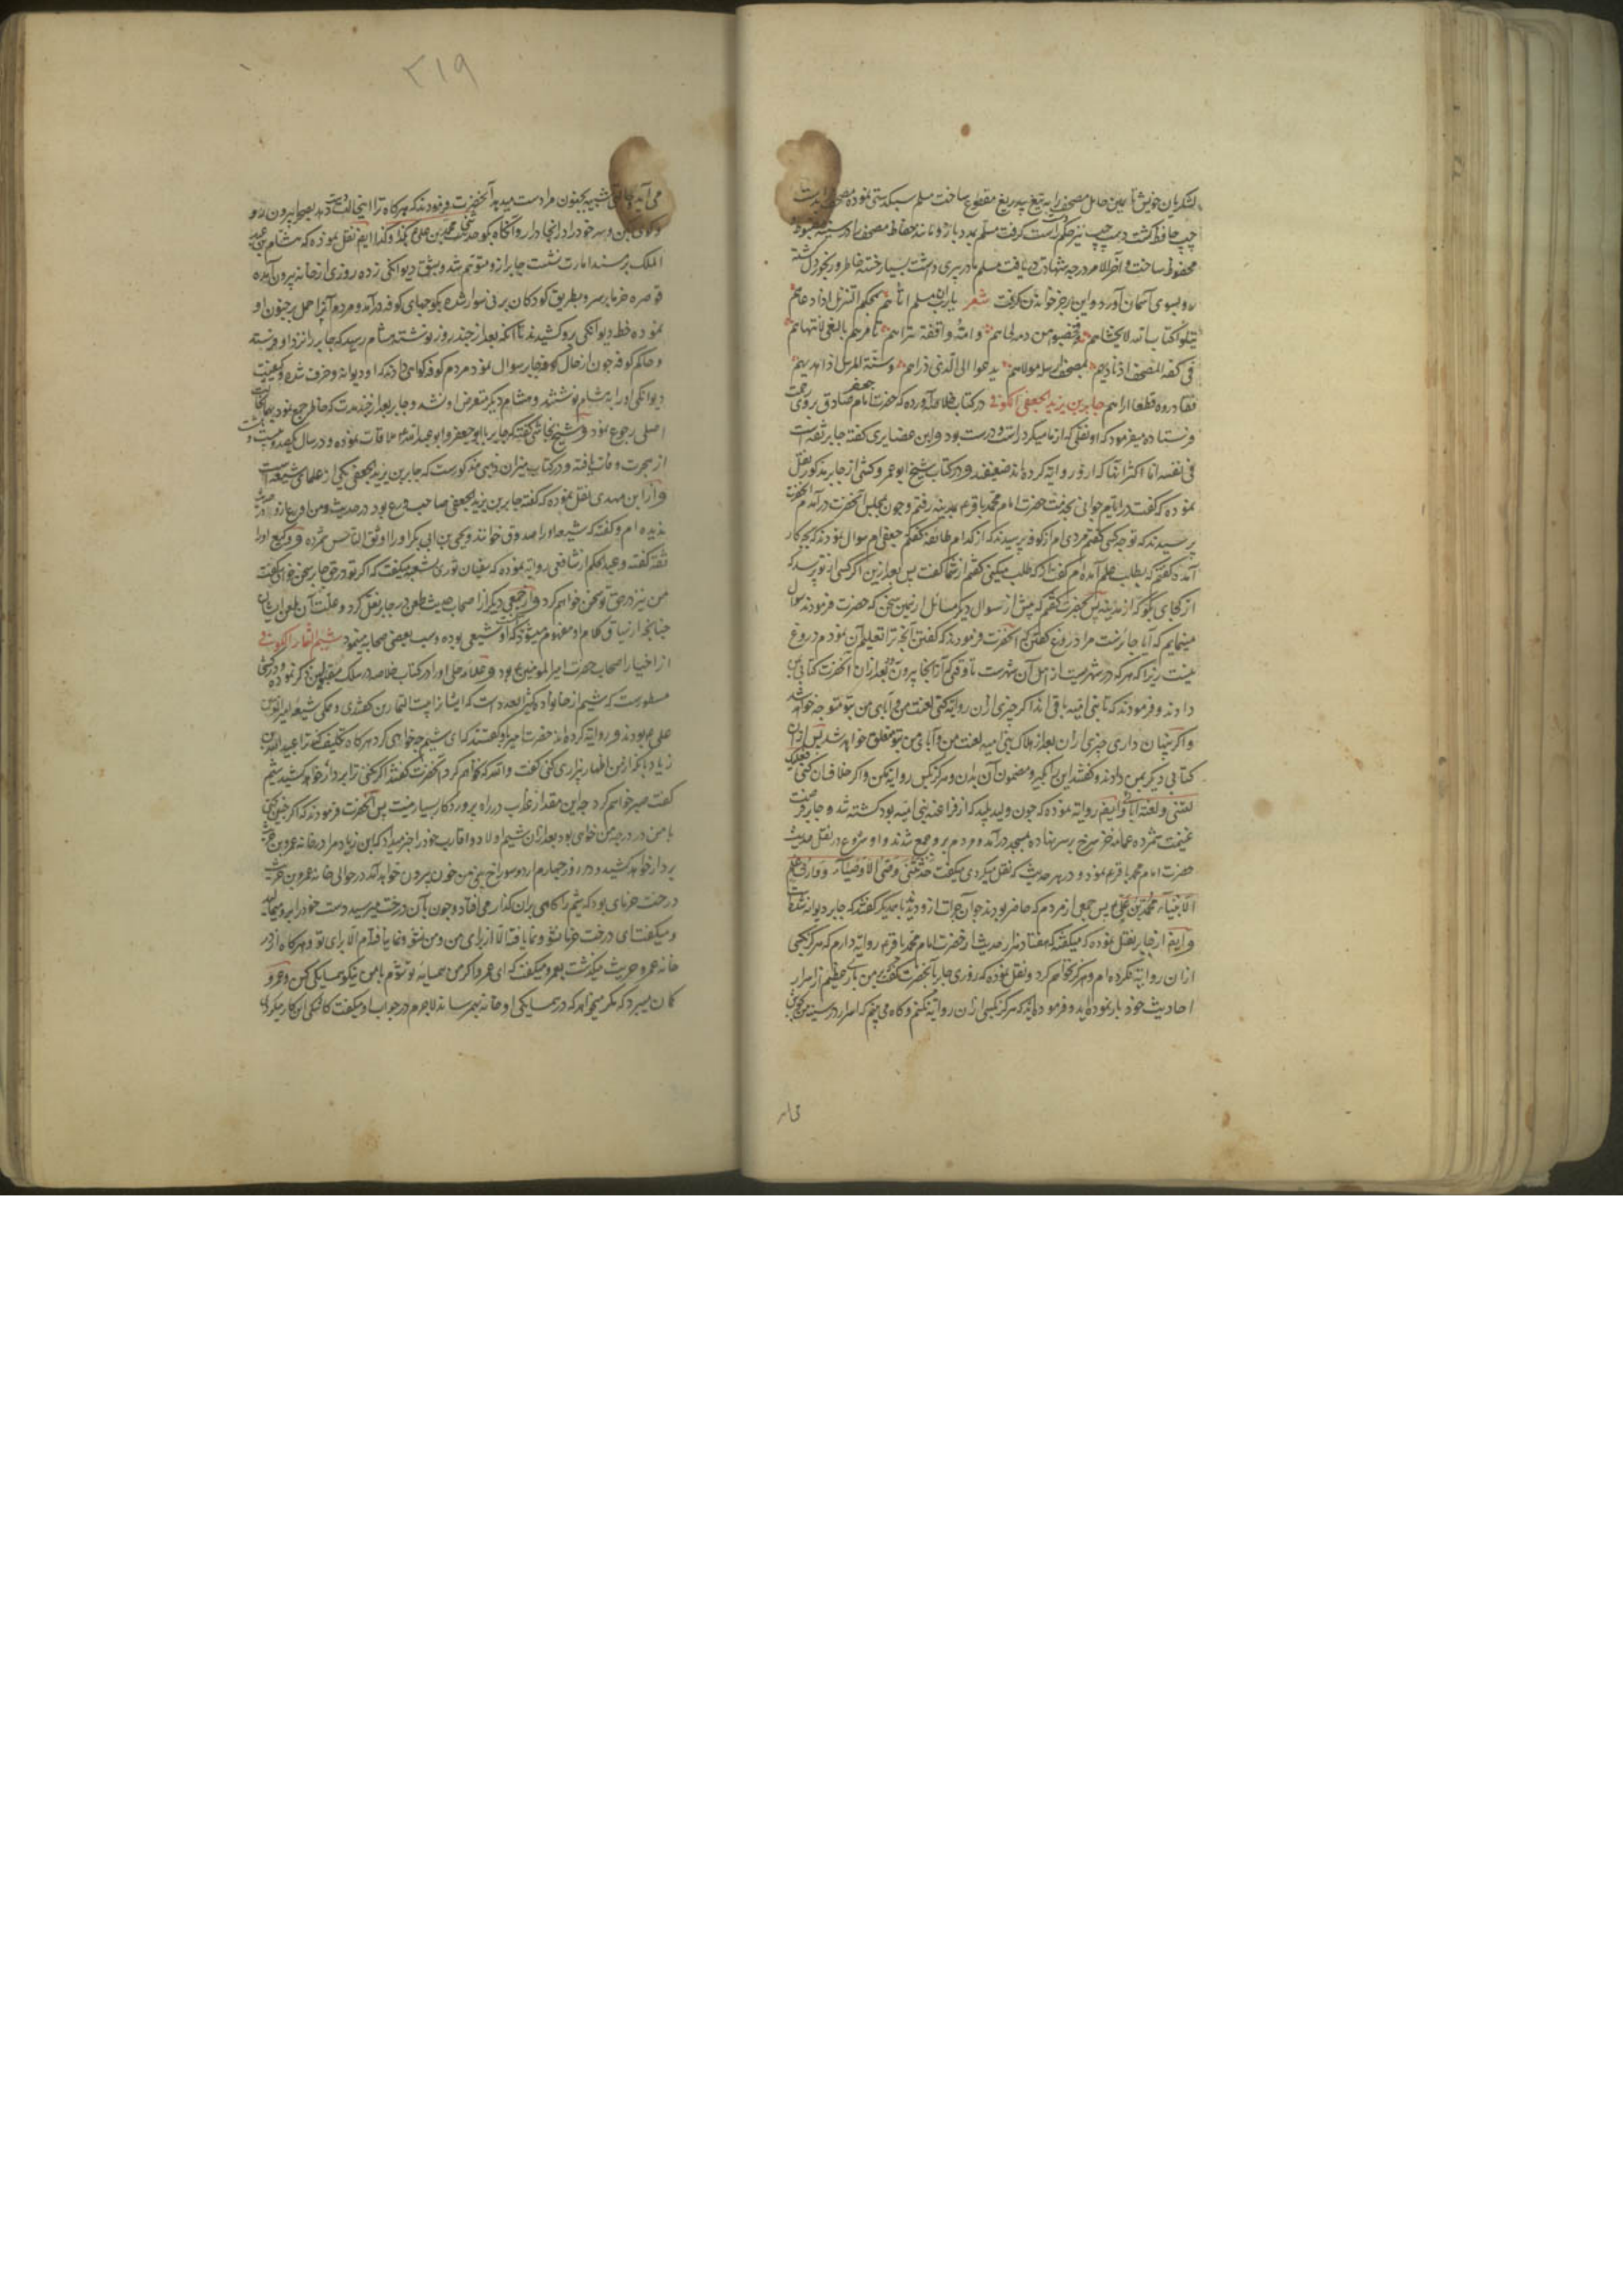 لشکریان خویش تا بعین حامل مصحف را به تیغ بیدریغ مقطوع ساخت مسلم سبکدستی نموده مصحف را بدست
چپ حافظ گشت دست چپ نیز حکم راست گرفت مسلم بمدد بازو مانند حفاظ مصحف را در سینه
محفوظ ساخت و آخرالامر درجه شهادت دریافت مسلم مادر پیری داشت بسیار خسته خاطر و رنجور دل گشته
رو بسوی آسمان آورد و این رجز خواندن گرفت شعر یا رب ان مسلما اتاهم بمحکم التنزیل اذ دعاهم
یتلو کتاب الله لا یخشاهم فخضبوا من دمه لحاهم و امه واقفة تراهم تأمرهم بالبغی لا تنهاهم
جابر بن یزید الجعفی الکوفی در کتاب خلاصه آورده که حضرت امام جعفر صادق بر وی رحمت
فرستاده میفرمود که او نقلی که از ما میکرد راست و درست بود و ابن غضایری گفته جابر ثقه است
فی نفسه اما اکثر آنها که از و روایه کرده‌اند ضعیفند و در کتاب شیخ ابو عمرو کشی از جابر مذکور نقل
نموده که گفت در ایام جوانی بخدمت حضرت امام محمد باقر ع بمدینه رفتم و چون بمجلس آنحضرت درآمدم آنحضرت
پرسیدند که تو چه کسی گفتم مردی ام از کوفه پرسیدند که از کدام طائفه گفتم جعفی ام سوال نمودند که بچه کار
آمده گفتم که بطلب علم آمده‌ام گفتند که از که طلب میکنی گفتم از شما گفت پس بعد ازین اگر کسی از تو پرسد که
از کجای بگو که از مدینه پس بحضرت گفتم که پیش از سوال دیگر مسائل از همین سخن که حضرت فرمودند سوال
مینمایم که آیا جائزست مرا دروغ گفتن آنحضرت فرمودند که گفتن آنچه ترا تعلیم آن نمودم دروغ
نیست زیرا که هر که در شهریست از اهل آن شهرست تا وقتی که از آنجا بیرون رود بعد از آن آنحضرت کتابی بمن
دادند و فرمودند که تا بنی امیه باقی اند اگر چیزی از ان روایه کنی لعنت من و آبای من بتو متوجه خواهد شد
و اگر پنهان داری چیزی از ان بعد از هلاک بنی امیه لعنت من و آبای من بتو متعلق خواهد شد پس از ان
کتابی دیگر بمن دادند و گفتند این را بگیر و مضمون آن بدان و هرگز بکس روایه مکن و اگر خلاف آن کنی فعلیک
لعنتی و لعنة آبائی و ایضا روایه نموده که چون ولید پلید که از فراعنه بنی امیه بود کشته شد و جابر فرصت
غنیمت شمرده عمامه خز سرخ بر سر نهاده بمسجد درآمد و مردم برو جمع شدند و او شروع در نقل حدیث
حضرت امام محمد باقر ع نمود و در هر حدیث که نقل میکردی میگفت حدثنی وصی الاوصیاء و وارث علم
الانبیاء محمد بن علی ع پس جمعی از مردم که حاضر بودند چون آن جرات ازو دیدند با همدیگر گفتند که جابر دیوانه شده است
و ایضا از جابر نقل نموده که میگفته که هفتاد هزار حدیث از حضرت امام محمد باقر ع روایه دارم که هرگز بکسی
ازان روایه نکرده‌ام و هرگز نخواهم کرد و نقل نموده که روزی جابر بآنحضرت گفت که بمن باری عظیم از اسرار
احادیث خود بار نموده‌اید و فرموده‌اید که هرگز بکسی از ان روایه نکنم و گاه می بینم که اسرار در سینه من بجوش
۲۱۹
می آید و حالتی شبیه بجنون مرا دست میدهد آنحضرت فرمودند که هرگاه ترا این حالت دست دهد بصحرا بیرون رو
و گوی بکن و سر خود را در انجا در آر و آنگاه بگو حدثنی محمد بن علی ع بکذا و کذا ایضا نقل نموده که هشام بن عبد
الملک بر مسند امارت نشست جابر ازو متوهم شد و بشق دیوانگی زده روزی از خانه بیرون آمده
قوصره خرما بر سر و بطریق کودکان بر نی سوار شده بکوچهای کوفه درآمد و مردم آنرا حمل بر جنون او
نموده خط دیوانگی برو کشیدند تا آنکه بعد از چند روز نوشته هشام رسید که جابر را نزد او فرستند
و حاکم کوفه چون از حال جابر سوال نمود مردم کوفه گواهی دادند که او دیوانه و خرف شده و کیفیت
دیوانگی او را به شام نوشتند و هشام دیگر متعرض او نشد و جابر بعد از چند مدت که خاطر جمع نمود بحالت
اصلی رجوع نمود و شیخ نجاشی گفته که جابر با ابو جعفر و ابو عبدالله ع ملاقات نموده و در سال یکصد و بیست و هشت
از هجرت وفات یافته و در کتاب میزان ذهبی مذکورست که جابر بن یزید الجعفی یکی از علمای شیعه است
و از ابن مهدی نقل نموده که گفته جابر بن یزید الجعفی صاحب ورع بود در حدیث و من اورع ازو در حدیث
ندیده‌ام و گفته که شعبه او را صدوق خوانند و یحیی بن ابی بکر او را اوثق الناس شمرده و وکیع او را
ثقه گفته و عبد الحکم از شافعی روایه نموده که سفیان ثوری بشعبه میگفت که اگر تو در حق جابر سخن خواهی گفت
من نیز در حق تو سخن خواهم کرد و از جمعی دیگر از اصحاب حدیث طعن در جابر نقل کرد و علت آن طعن ایشان
چنانچه از سیاق کلام او مفهوم میشود که او شیعی بوده و سب بعضی صحابه مینمود میثم التمار الکوفی
از اخیار اصحاب حضرت امیر المومنین ع بود و علامه حلی او را در کتاب خلاصه در سلک مقبولین ذکر نموده و در کشی
مسطورست که میثم از خانواده کثیر العدد است که ایشانرا بیت التمارین گفتندی و همگی شیعه امیرالمومنین
علی ع بودند و روایه کرده اند حضرت امیر باو گفتند که ای میثم چه خواهی کرد هرگاه تکلیف کند ترا عبید الله بن
زیاد بآنکه از من اظهار بیزاری کنی گفت والله که نخواهم کرد آنحضرت گفتند اگر نکنی ترا بر دار خواهد کشید میثم
گفت صبر خواهم کرد چه این مقدار عذاب در راه پروردگار بسیار نیست پس آنحضرت فرمودند که اگر چنین کنی
با من در درجه من خواهی بود بعد از آن میثم اولاد و اقارب خود را خبر میداد که ابن زیاد مرا در خانه عمرو بن حریث
بر دار خواهد کشید و در روز چهارم از دو سوراخ بینی من خون بیرون خواهد آمد در حوالی خانه عمرو بن حریث
درخت خرمای بود که میثم را گاهی بران گذار می افتاد و چون بآن درخت میرسید دست خود را برو میمالید
و میگفت ای درخت خرما نشو و نما یافته الا از برای من و من نشو و نما نیافته‌ام الا برای تو و هرگاه از در
خانه عمرو حریث میگذشت بعمرو میگفت که ای عمرو اگر من همسایه تو شوم با من نیکو همسایگی کن و عمرو
گمان میبرد که مگر میخواهد که در همسایگی او خانه بهم رساند لاجرم در جواب او میگفت کاشکی این کار میکردی